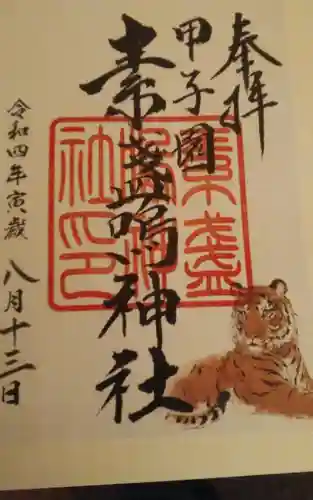 奉拝
甲子園
素盞嗚神社
令和四年寅歳
八月十三日
素盞
嗚神
社印